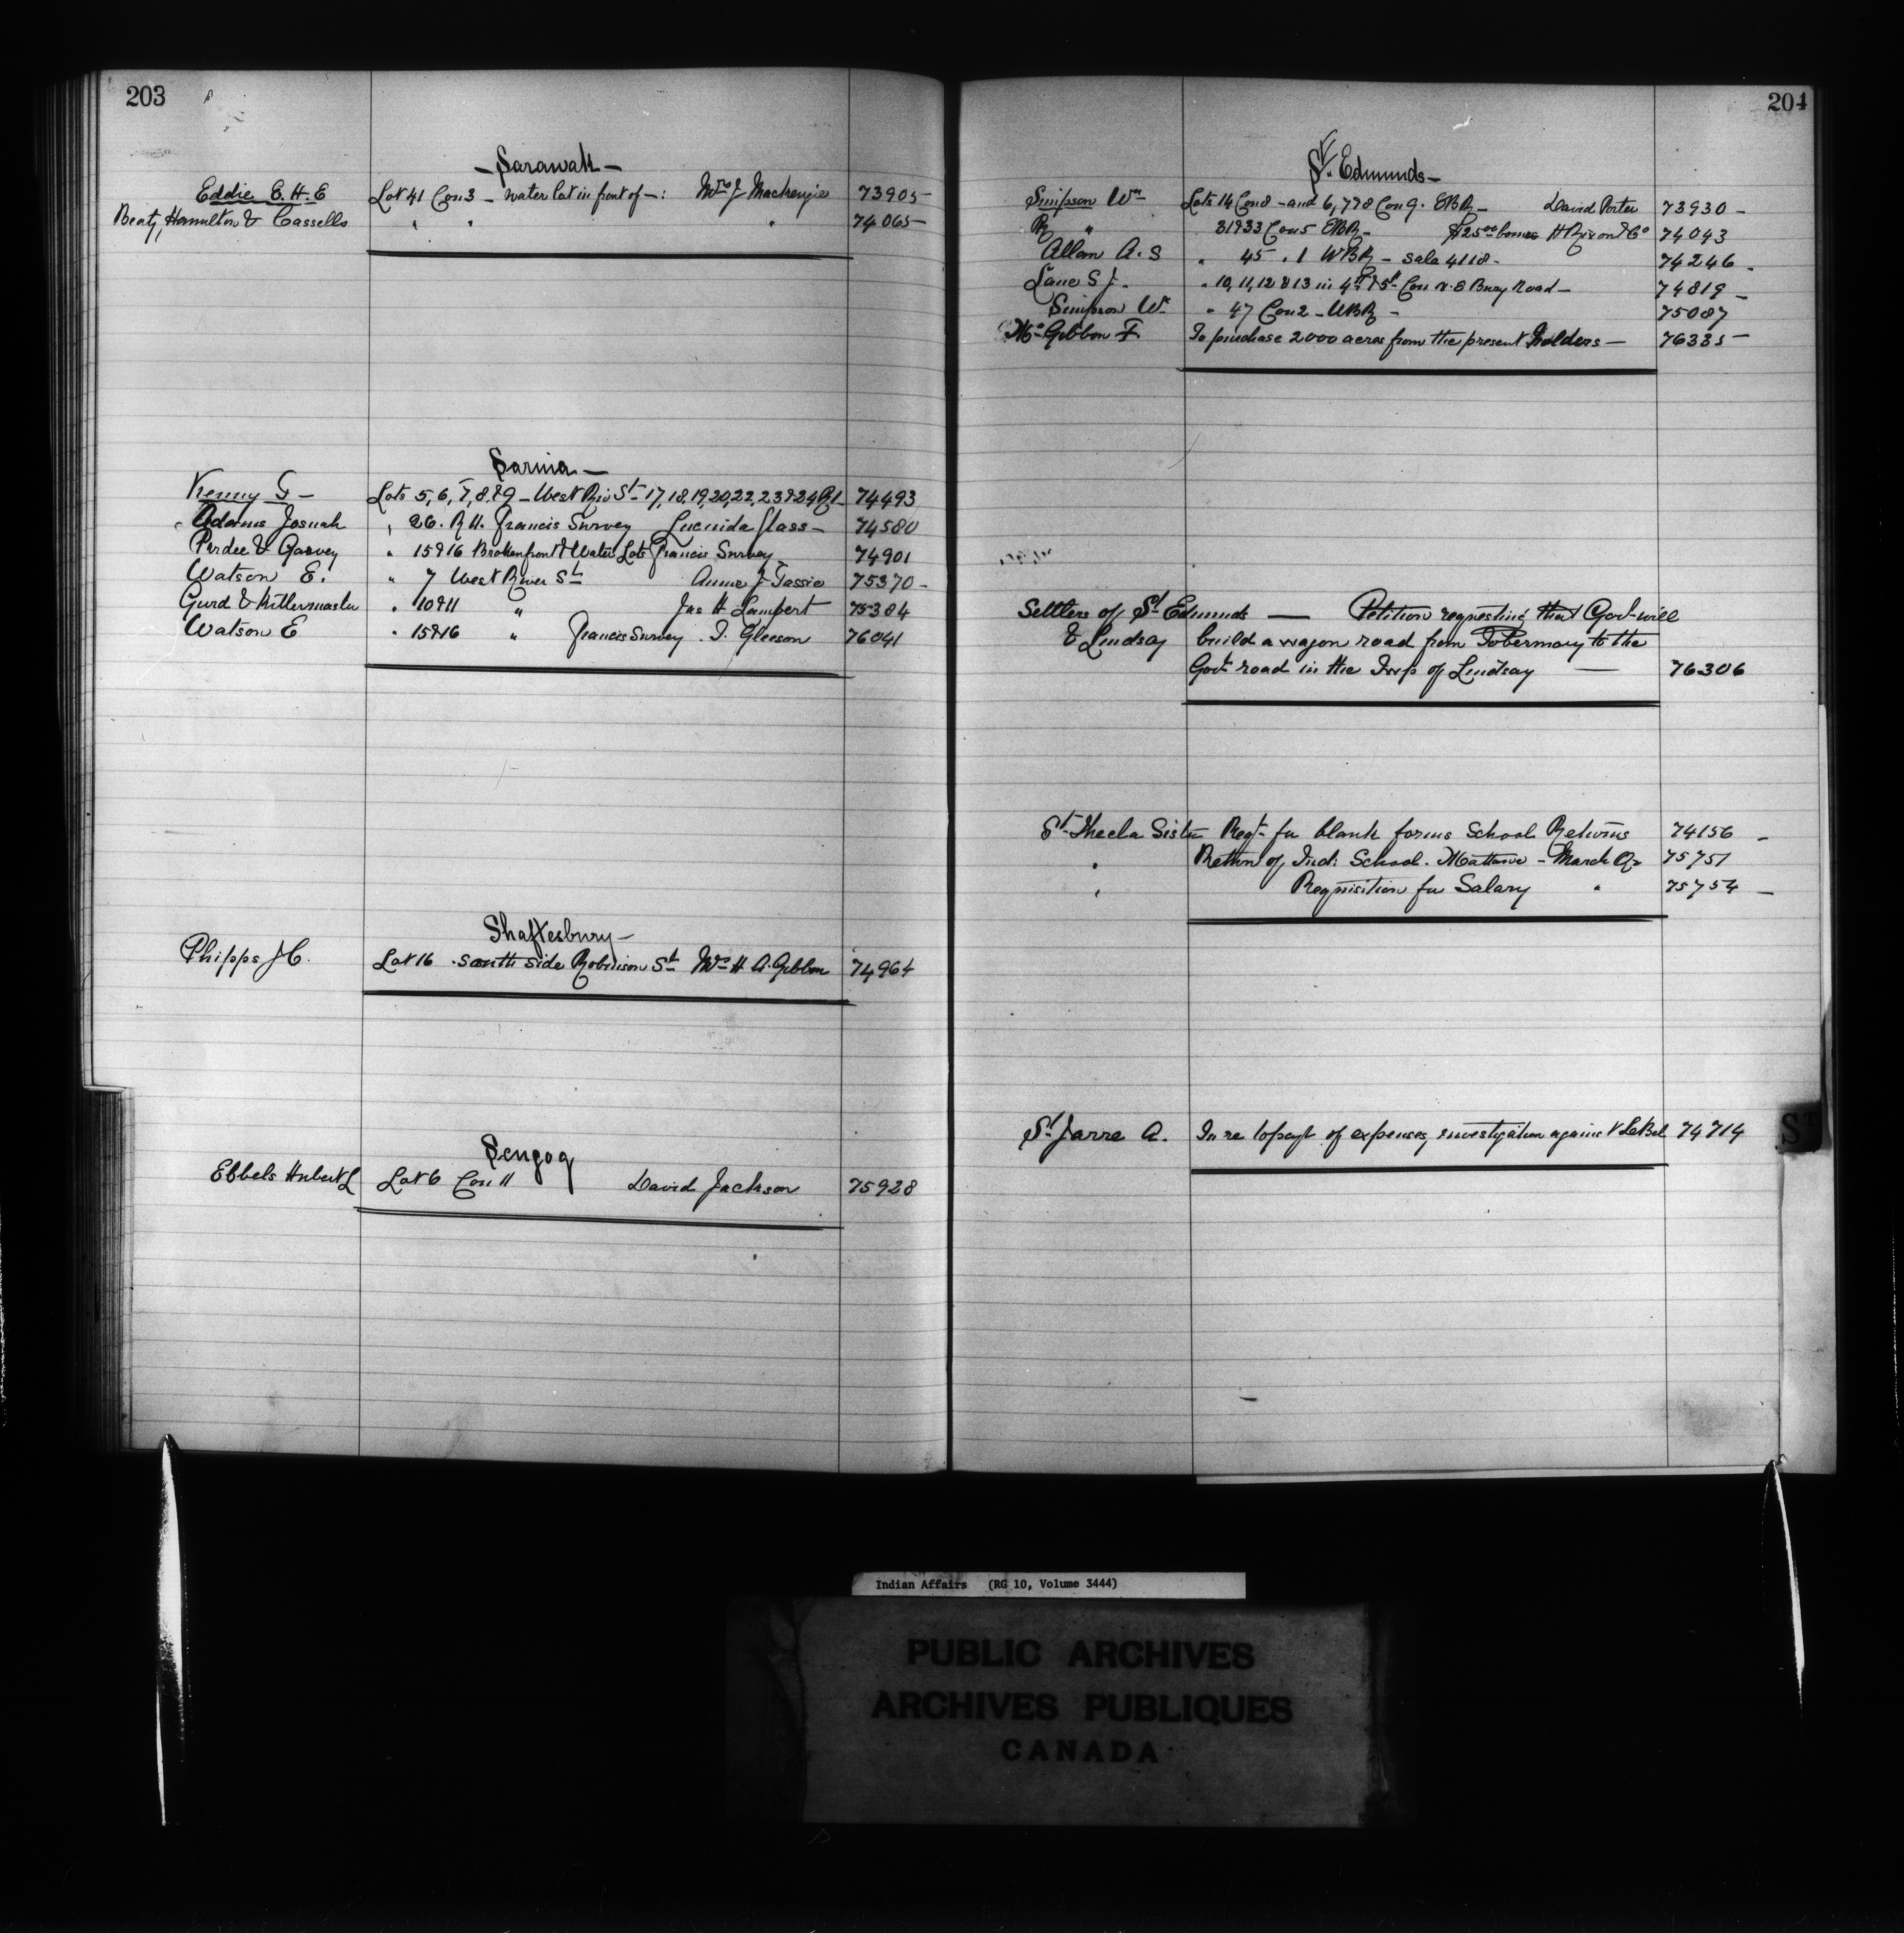 203
- Sarawak -
Eddie C. H. E Lot 41 Con 3 - water lot in front of -: Mrs J Mackenzie 73905 -
Beaty, Hamilton & Cassells " " " 74065 -
Sarnia -
Kenny G - Lots 5, 6, 7, 8, & 9 - West Riv St - 17, 18, 19, 20, 22, 23 & 24 74493
Adams Josuah " 26. R H. Francis Survey Lucinda Glass - 74580
Pardee & Garvey " 15 & 16 Broken front & Water Lots Francis Survey 74901
Watson E. " 7 West River St Anne J Tassie 75370 -
Gurd & Kittermaster " 10 & 11 " Jas H Lampert 75384
Watson E " 15 & 16 " Francis Survey . T. Gleeson 76041
Shaftesbury -
Phipps J C. Lot 16 . South side Robinson St Mrs H A. Gibbon 74964
Scugog
Ebbels Hubert L Lot 6 Con 11 David Jackson 75928
204
St. Edmunds -
Simpson Wm Lots 14 Con 8 - and 6, 7 & 8 Con 9. EBR - David Porter 73930 -
R " 31 & 33 Con 5 EBR - $25.00 bonus H Rixon & Co 74043
Allan A. S " 45 " 1 WBR - Sale 4118 - 74246 -
Lane S J. " 10, 11, 12 & 13 in 4th & 5th Con N. E Bury Road - 74819 -
Simpson W. " 47 Con 2 - WBR - 75087
McGibbon F. To purchase 2000 acres from the present holders - 76335 -
Settlers of St Edmunds — Petition requesting that Govt will
& Lindsay build a wagon road from Tobermory to the
Govt road in the Twp of Lindsay — 76306
St. Thecla Sister Reqt. for blank forms School Returns 74156 -
" Return of Ind: School. Mattawa - March Qr 75751
" Requisition for Salary " 75754 -
St. Jarre A. In re to payt of expenses, investigation against LeBel 74714
St
Indian Affairs (RG 10, Volume 3444)
PUBLIC ARCHIVES
ARCHIVES PUBLIQUES
CANADA